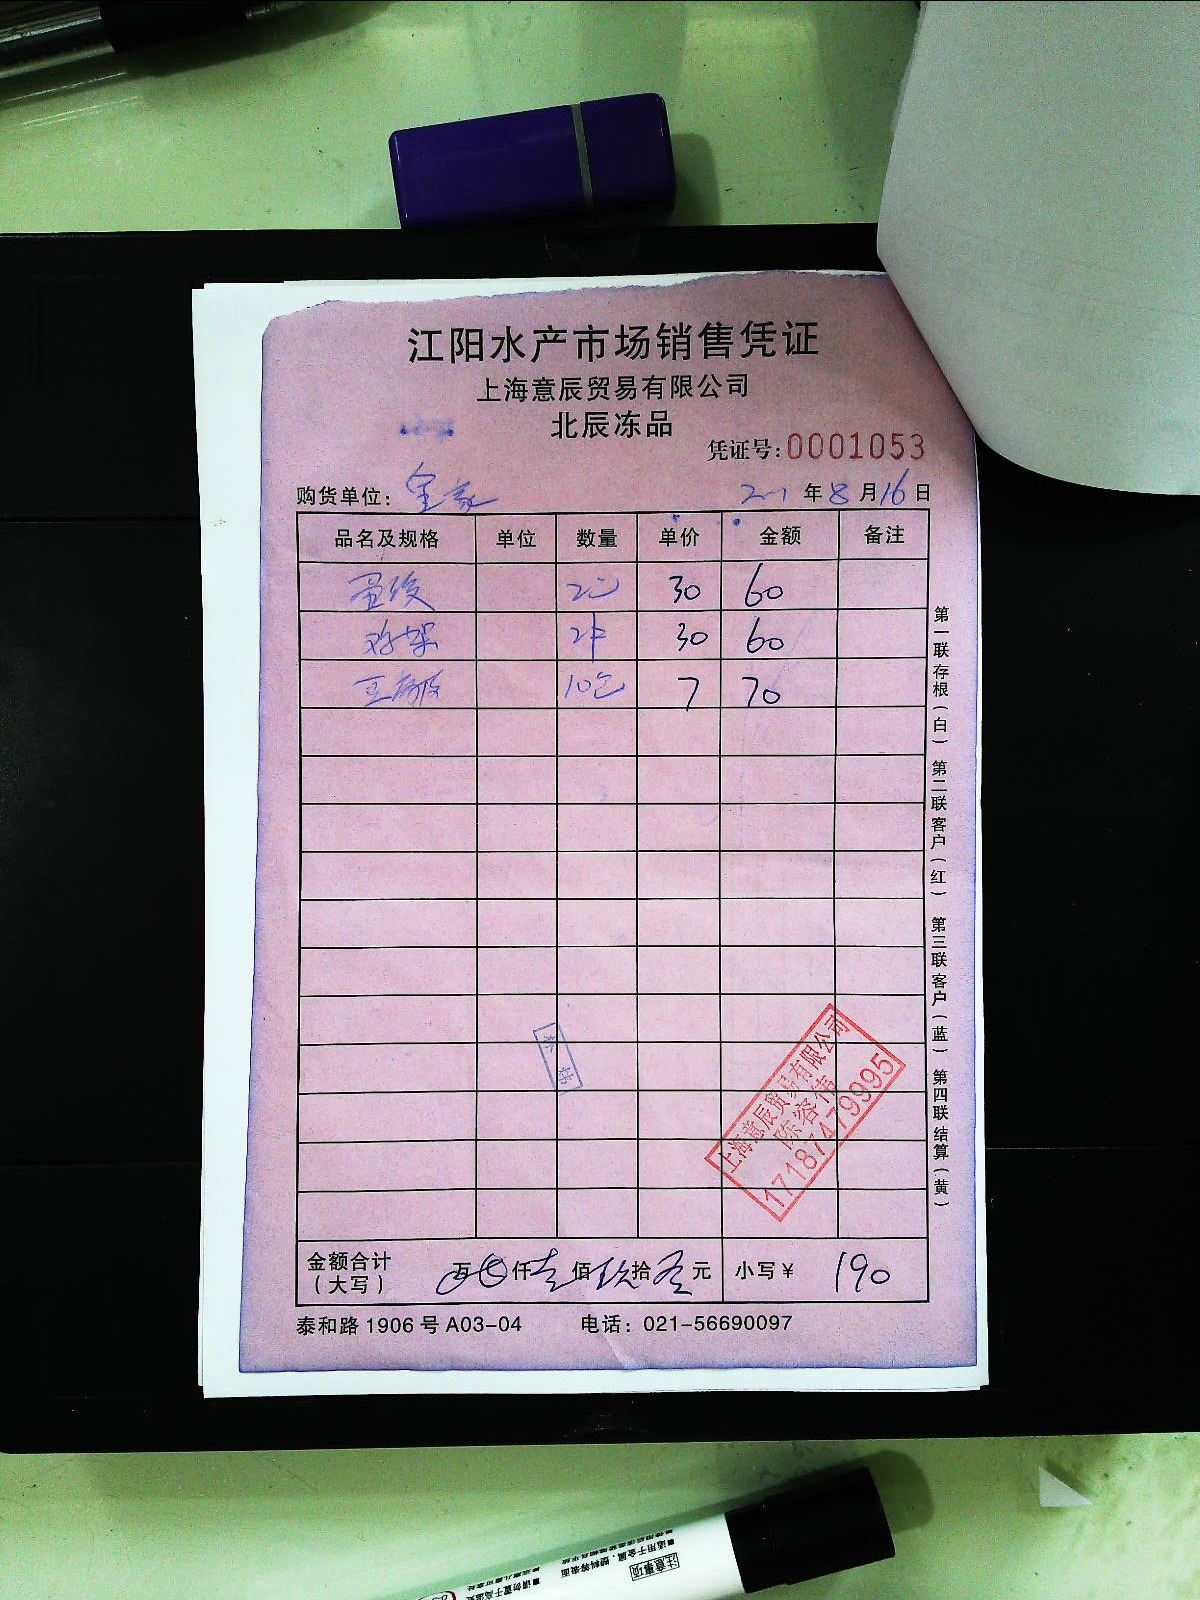 江阳水产市场销售凭证
上海意辰贸易有限公司
北辰冻品
凭证号:0001053
购货单位:
年8月16日
品名及规格 单位 数量 单价 金额 备注
30 60
鸡架 2件 30 60
10包 7 70
金额合计(大写) 万 仟壹佰玖拾零元 小写¥ 190
泰和路1906号A03-04 电话:021-56690097
第一联存根(白) 第二联客户(红) 第三联客户(蓝) 第四联结算(黄)
上海意辰贸易有限公司
17187479995
注意事项